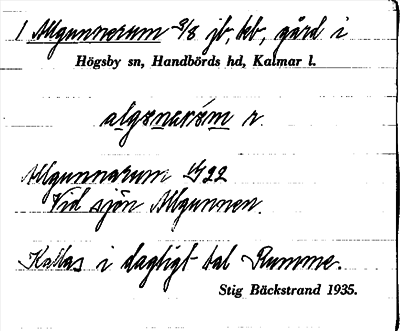 1 Allgunnarum 8/8 jb, bb, gård i
Högsby sn, Handbörds hd, Kalmar l.
algonaröm r.
Allgunnarum 22
Vid sjön Allgunnen.
Kallas i dagligt tal Rumme.
Stig Bäckstrand 1935.